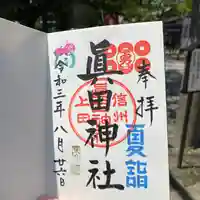 奉拝
夏詣
眞田神社
信州
上田
令和三年八月廿六日